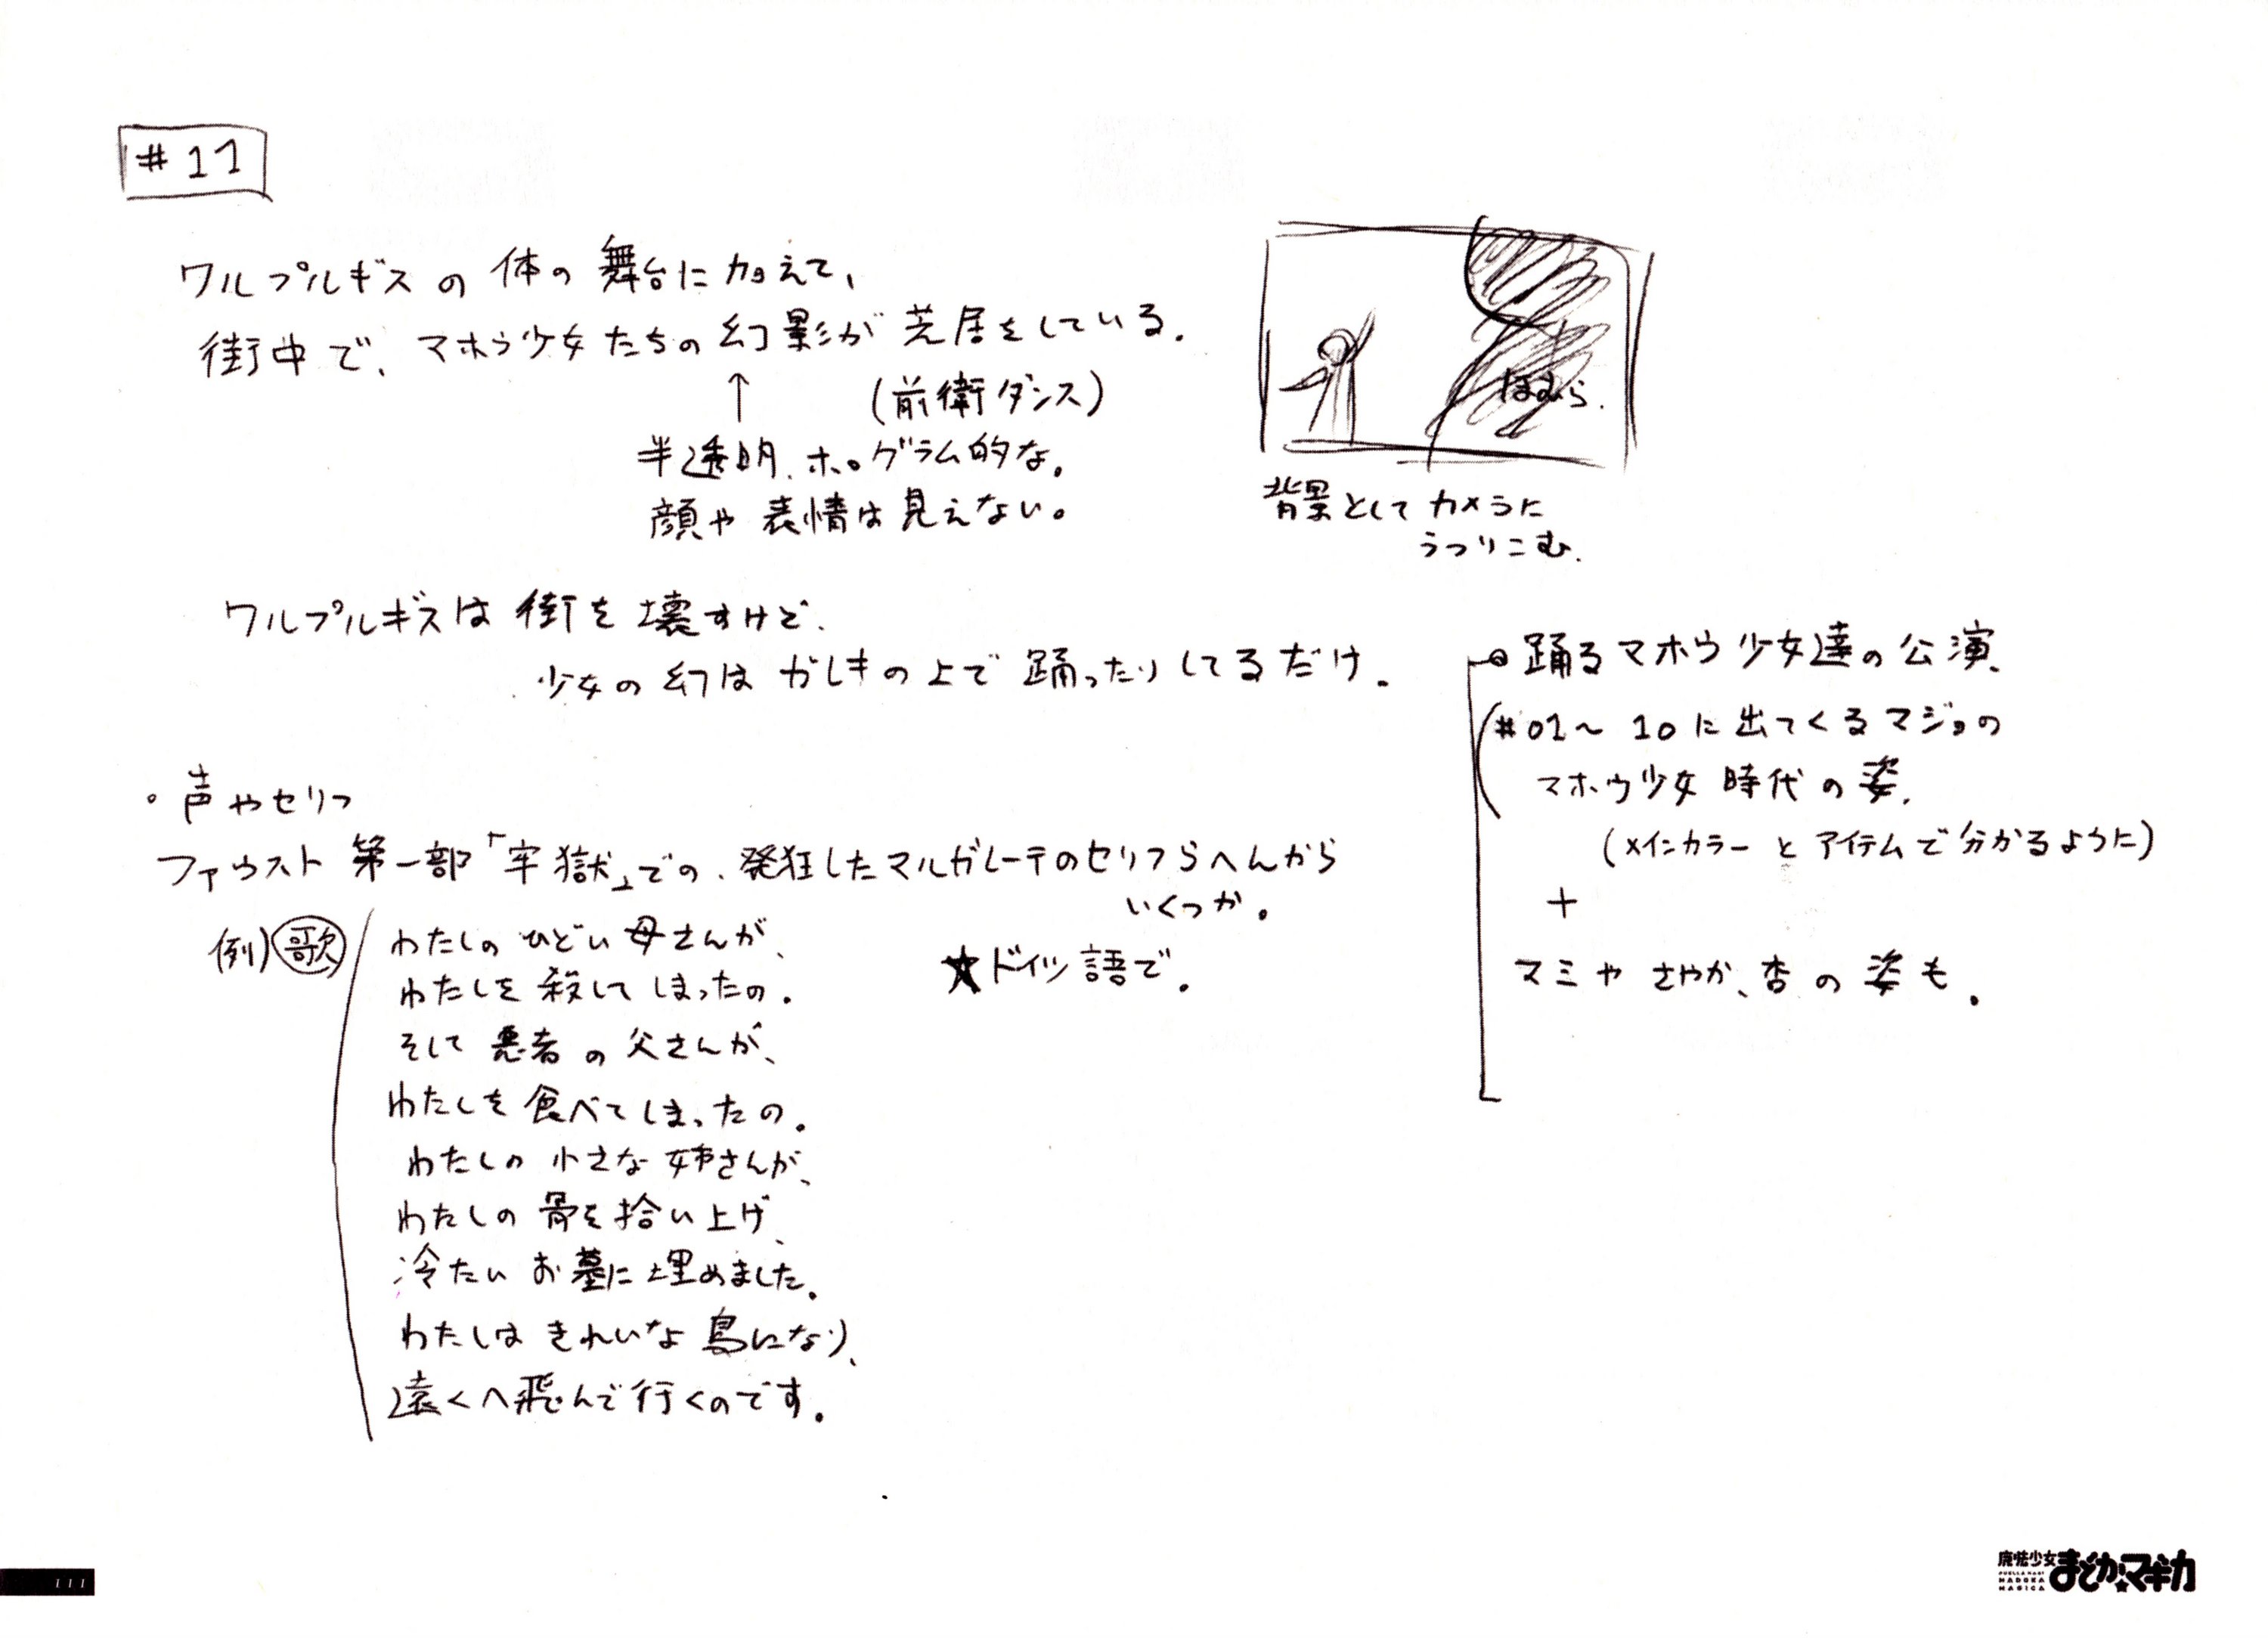 #11
ワルプルギスの体の舞台に加えて、
街中で、マホウ少女たちの幻影が芝居をしている。
↑ (前衛ダンス)
半透明、ホログラム的な。
顔や表情は見えない。
ほむら.
背景としてカメラに
うつりこむ.
ワルプルギスは街を壊すけど、
少女の幻はガレキの上で踊ったりしてるだけ.
◦声やセリフ
ファウスト第一部「牢獄」での、発狂したマルガレーテのセリフらへんから
いくつか。
★ドイツ語で.
例)歌
わたしのひどい母さんが、
わたしを殺してしまったの.
そして悪者の父さんが、
わたしを食べてしまったの.
わたしの小さな姉さんが、
わたしの骨を拾い上げ、
冷たいお墓に埋めました.
わたしはきれいな鳥になり、
遠くへ飛んで行くのです.
踊るマホウ少女達の公演、
(#01~10に出てくるマジョの
マホウ少女時代の姿.
(メインカラーとアイテムで分かるように)
+
マミやさやか、杏の姿も.
111
魔法少女
まどか★マギカ
PUELLA MAGI
MADOKA
MAGICA